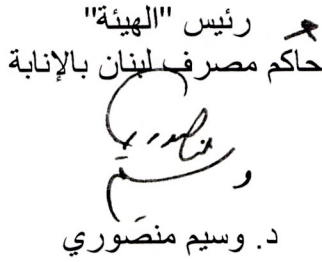 رئيس "الهيئة"
حاكم مصرف لبنان بالإنابة
د. وسيم منصوري